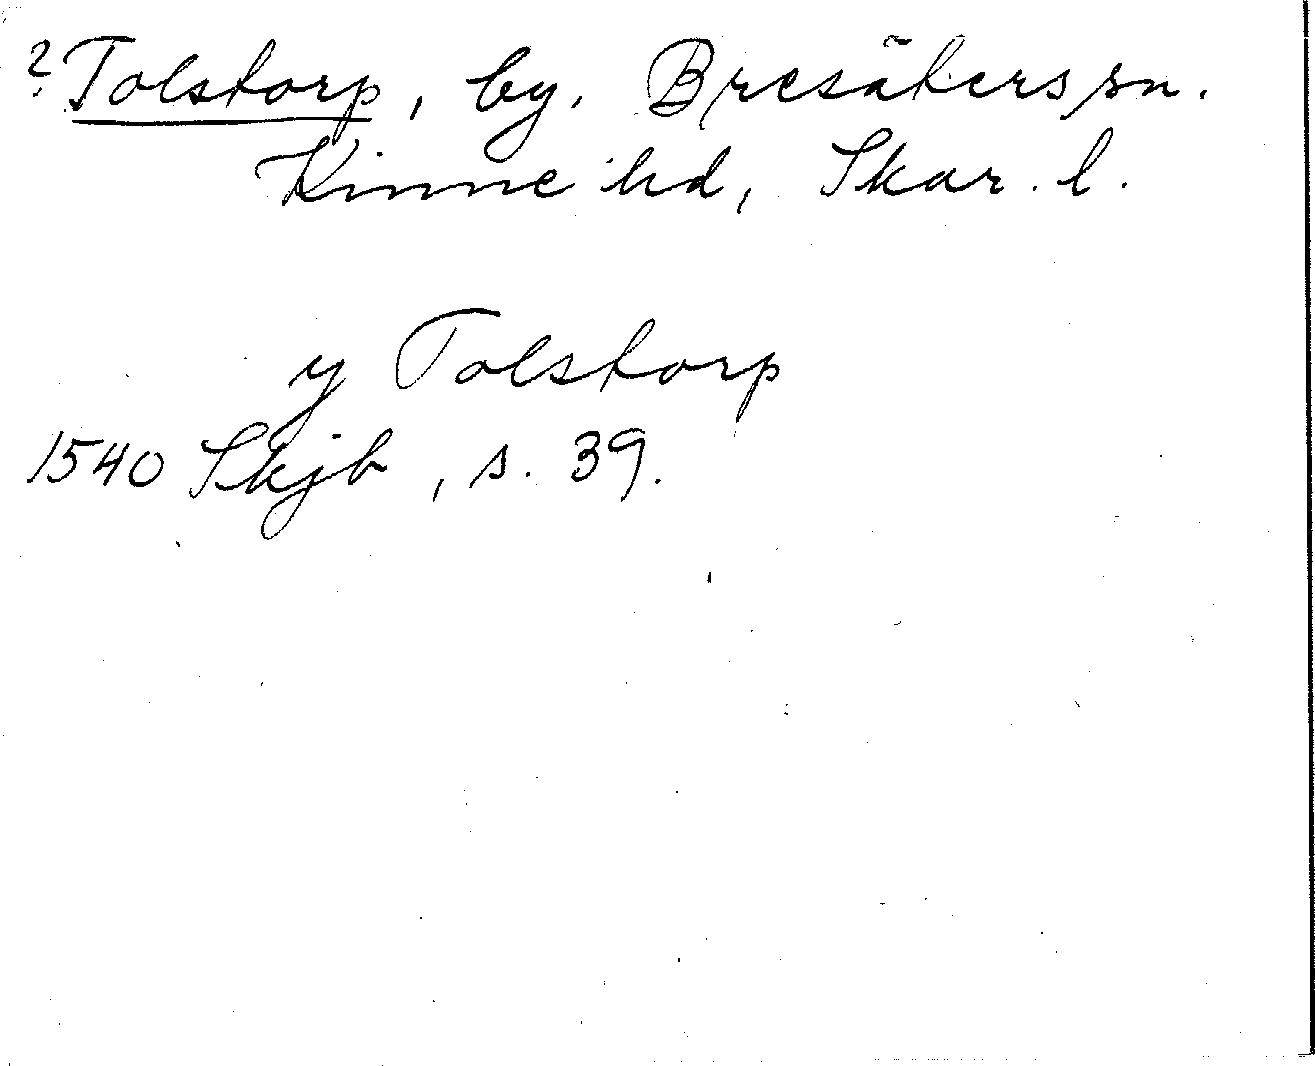 ? Tolstorp, by, Bresäkers sn.
Kinne hd, Skar. l.
y Tolstorp
1540 Skjb, s. 39.